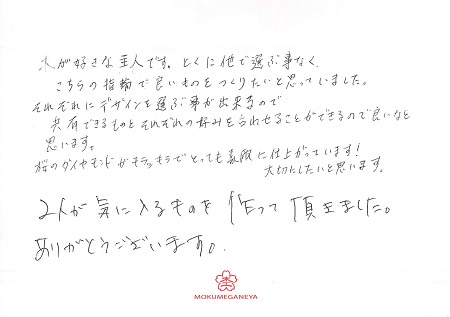 木が好きな主人です。とくに他で選ぶ事なく、
こちらの指輪で良いものをつくりたいと思っていました。
それぞれにデザインを選ぶ事が出来るので
共有できるものとそれぞれの好みを合わせることができるので良いなと
思います。
桜のダイヤモンドがキラッキラでとっても素敵に仕上がっています!
大切にしたいと思います。
2人が気に入るものを作って頂きました。
ありがとうございます。
MOKUMEGANEYA